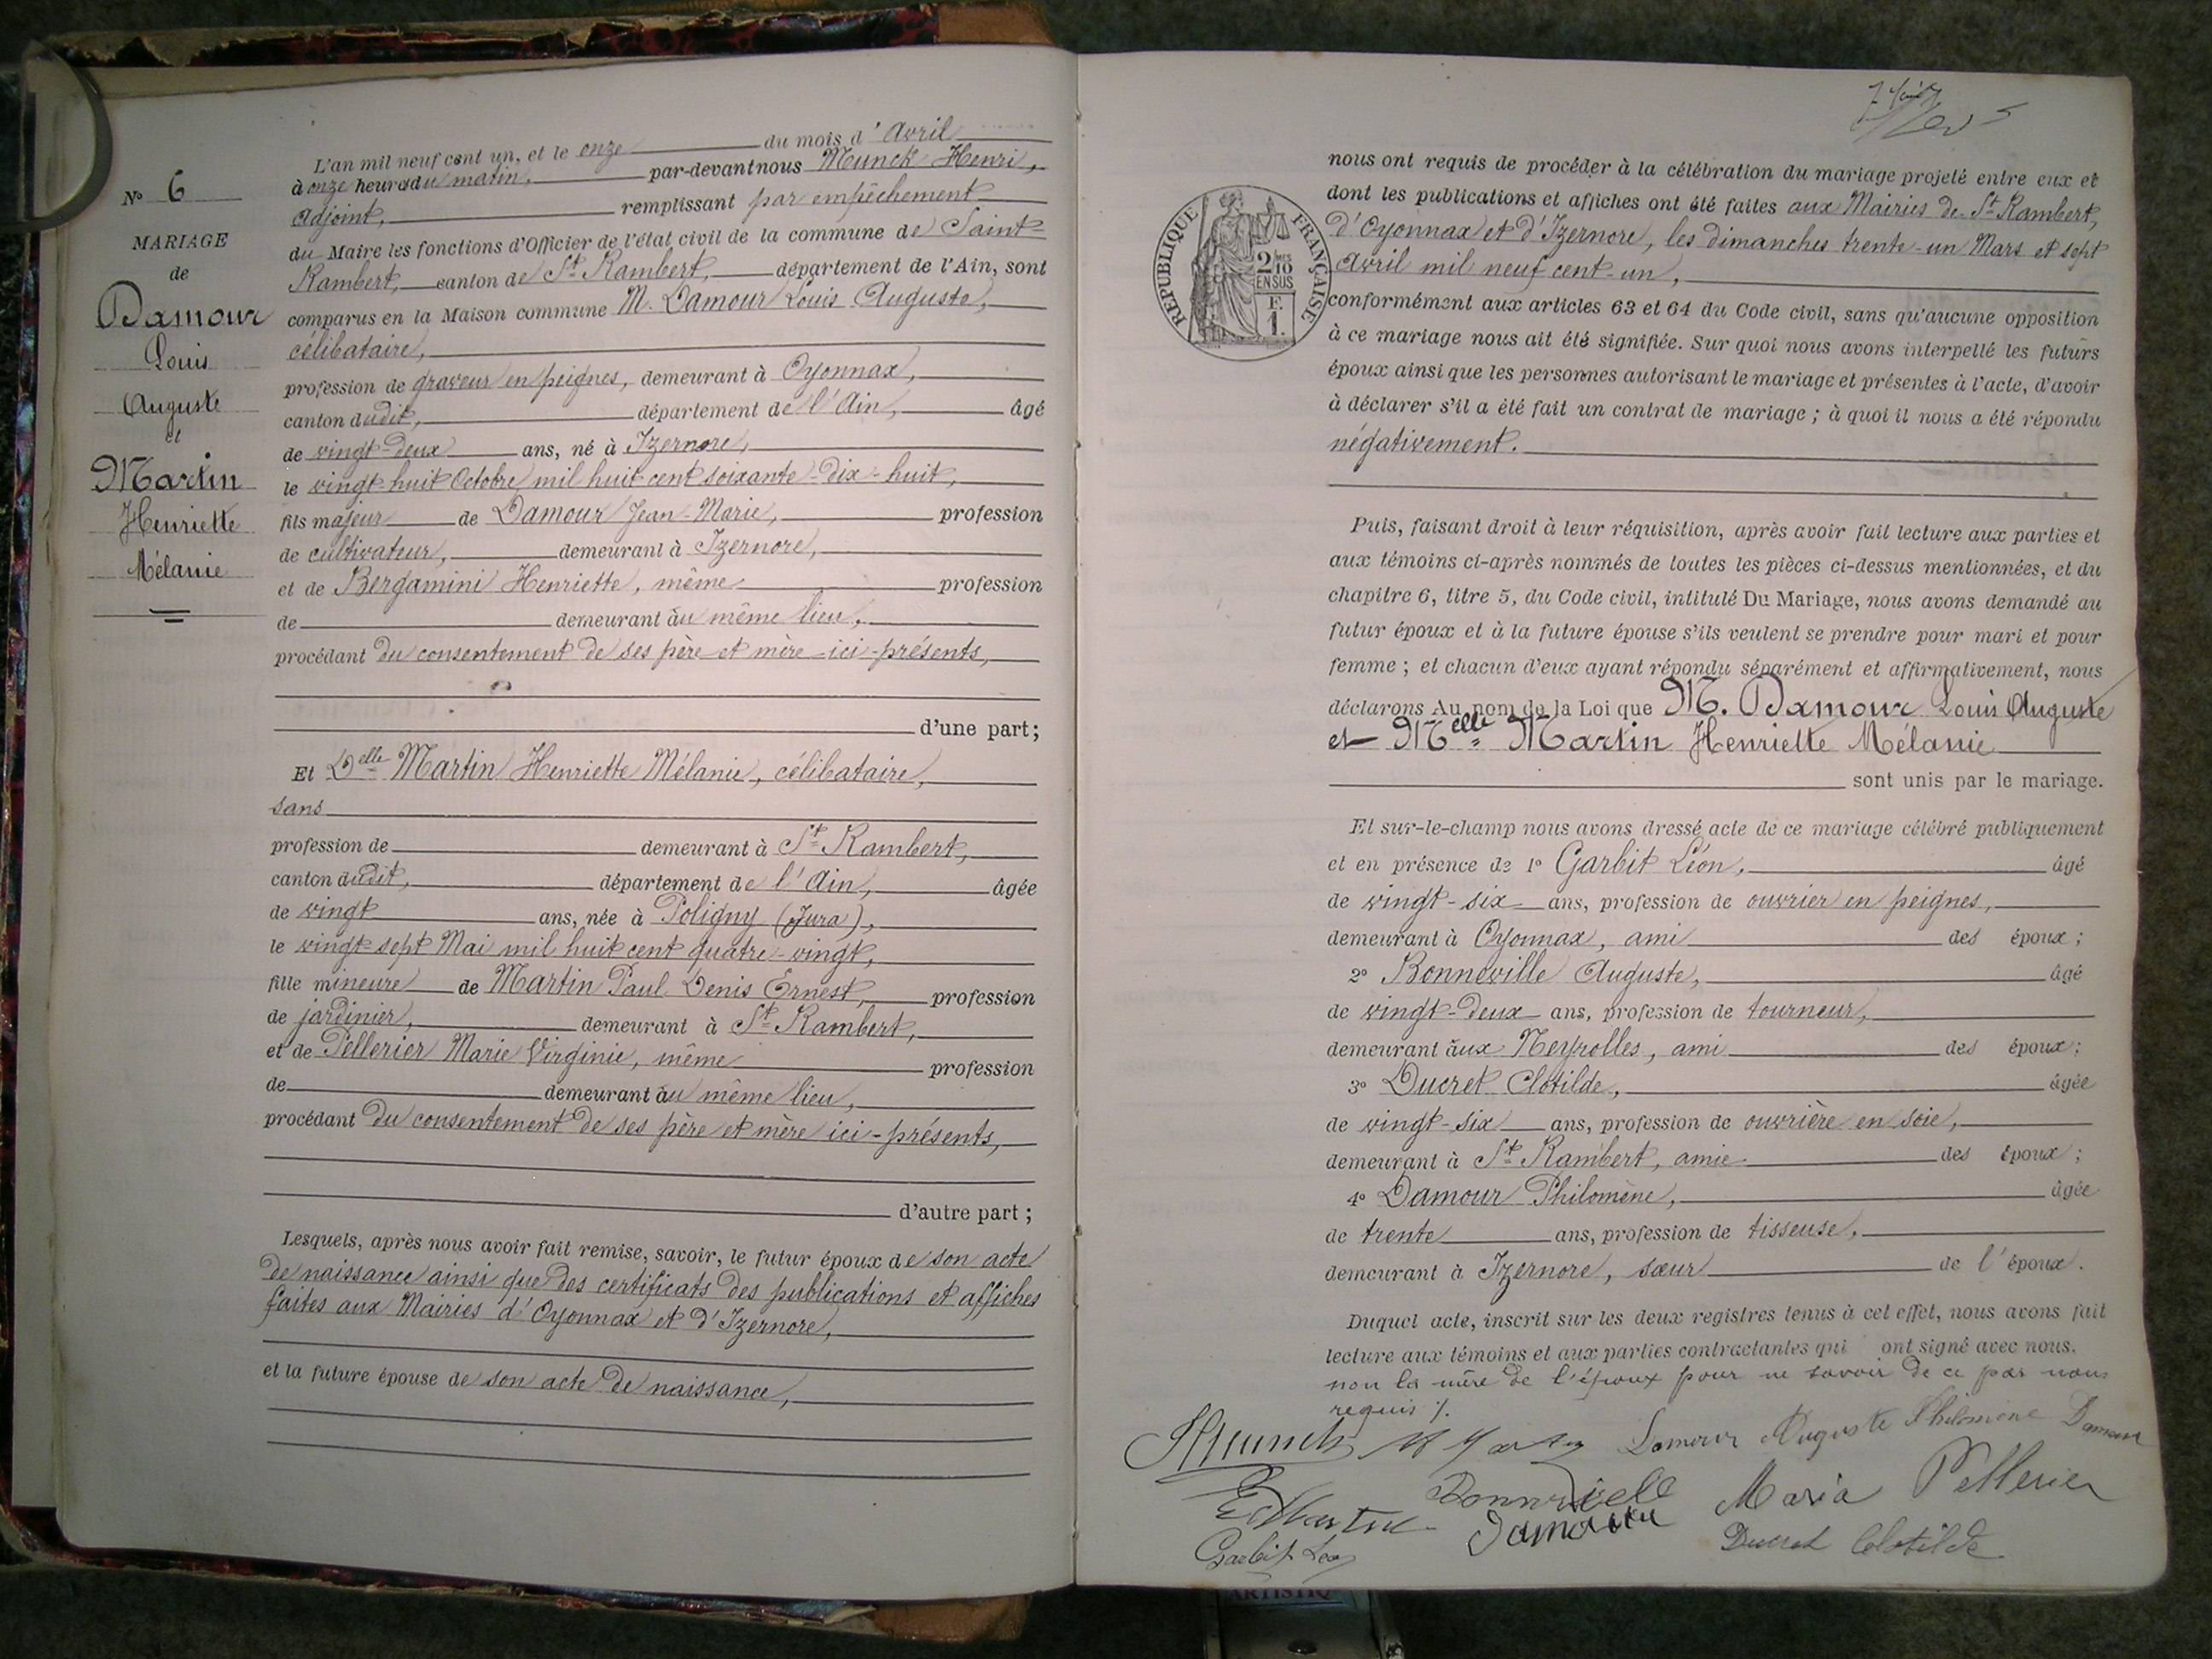 N° 6
MARIAGE
de
Damour
Louis
Auguste
et
Martin
Henriette
Mélanie
L'an mil neuf cent un, et le onze du mois d'Avril
à onze heures du matin, par-devant nous Munck Henri,
adjoint, remplissant par empêchement
du Maire les fonctions d'Officier de l'état civil de la commune de Saint-
Rambert, canton de St Rambert, département de l'Ain, sont
comparus en la Maison commune M. Damour Louis Auguste,
célibataire,
profession de graveur en peignes, demeurant à Oyonnax,
canton dudit, département de l'Ain, âgé
de vingt-deux ans, né à Izernore,
le vingt-huit Octobre mil huit cent soixante-dix-huit,
fils majeur de Damour Jean-Marie, profession
de cultivateur, demeurant à Izernore,
et de Bergamini Henriette, même profession
de demeurant au même lieu,
procédant du consentement de ses père et mère ici-présents,
d'une part;
Et Delle Martin Henriette Mélanie, célibataire,
sans
profession de demeurant à St Rambert,
canton dudit, département de l'Ain, âgée
de vingt ans, née à Poligny (Jura),
le vingt-sept Mai mil huit cent quatre-vingt,
fille mineure de Martin Paul Denis Ernest, profession
de jardinier, demeurant à St Rambert,
et de Pellerier Marie Virginie, même profession
de demeurant au même lieu,
procédant du consentement de ses père et mère ici-présents,
d'autre part;
Lesquels, après nous avoir fait remise, savoir, le futur époux de son acte
de naissance ainsi que des certificats des publications et affiches
faites aux Mairies d'Oyonnax et d'Izernore,
et la future épouse de son acte de naissance,
RÉPUBLIQUE FRANÇAISE
2/10
EN SUS
F.
1.
nous ont requis de procéder à la célébration du mariage projeté entre eux et
dont les publications et affiches ont été faites aux Mairies de St Rambert,
d'Oyonnax et d'Izernore, les dimanches trente-un Mars et sept
Avril mil neuf cent-un,
conformément aux articles 63 et 64 du Code civil, sans qu'aucune opposition
à ce mariage nous ait été signifiée. Sur quoi nous avons interpellé les futurs
époux ainsi que les personnes autorisant le mariage et présentes à l'acte, d'avoir
à déclarer s'il a été fait un contrat de mariage; à quoi il nous a été répondu
négativement.
Puis, faisant droit à leur réquisition, après avoir fait lecture aux parties et
aux témoins ci-après nommés de toutes les pièces ci-dessus mentionnées, et du
chapitre 6, titre 5, du Code civil, intitulé Du Mariage, nous avons demandé au
futur époux et à la future épouse s'ils veulent se prendre pour mari et pour
femme; et chacun d'eux ayant répondu séparément et affirmativement, nous
déclarons Au nom de la Loi que M. Damour Louis Auguste
et Melle Martin Henriette Mélanie
sont unis par le mariage.
Et sur-le-champ nous avons dressé acte de ce mariage célébré publiquement
et en présence de 1° Garbit Léon, âgé
de vingt-six ans, profession de ouvrier en peignes,
demeurant à Oyonnax, ami des époux;
2° Bonneville Auguste, âgé
de vingt-deux ans, profession de tourneur,
demeurant aux Neyrolles, ami des époux;
3° Ducret Clotilde, âgée
de vingt-six ans, profession de ouvrière en soie,
demeurant à St Rambert, amie des époux;
4° Damour Philomène, âgée
de trente ans, profession de tisseuse,
demeurant à Izernore, sœur de l'époux.
Duquel acte, inscrit sur les deux registres tenus à cet effet, nous avons fait
lecture aux témoins et aux parties contractantes qui ont signé avec nous.
non la mère de l'époux pour ne savoir de ce par nous
requis %.
HMunck Damour Auguste Philomène Damour
Bonneville Maria Pellerier
EMartin Damour
Garbit Léon Ducret Clotilde
ARTISTIQ